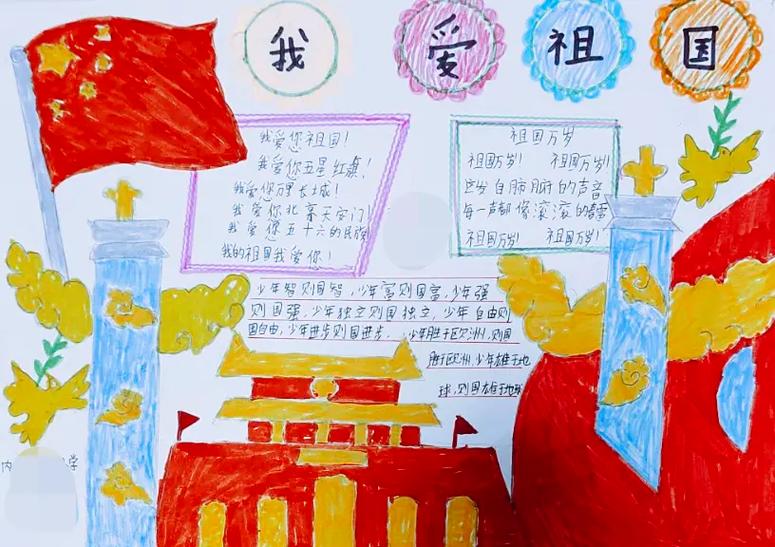 我爱祖国
我爱您祖国！
我爱您五星红旗！
我爱您万里长城！
我爱你北京天安门
我爱您五十六的民族
我的祖国我爱您！
祖国万岁
祖国万岁！ 祖国万岁！
这发自肺腑的声音
每一声都像滚滚的春雷
祖国万岁！ 祖国万岁！
少年智则国智，少年富则国富，少年强
则国强，少年独立则国独立，少年自由则
国自由，少年进步则国进步，少年胜于欧洲，则国
胜于欧洲，少年雄于地
球，则国雄于地球
内
学